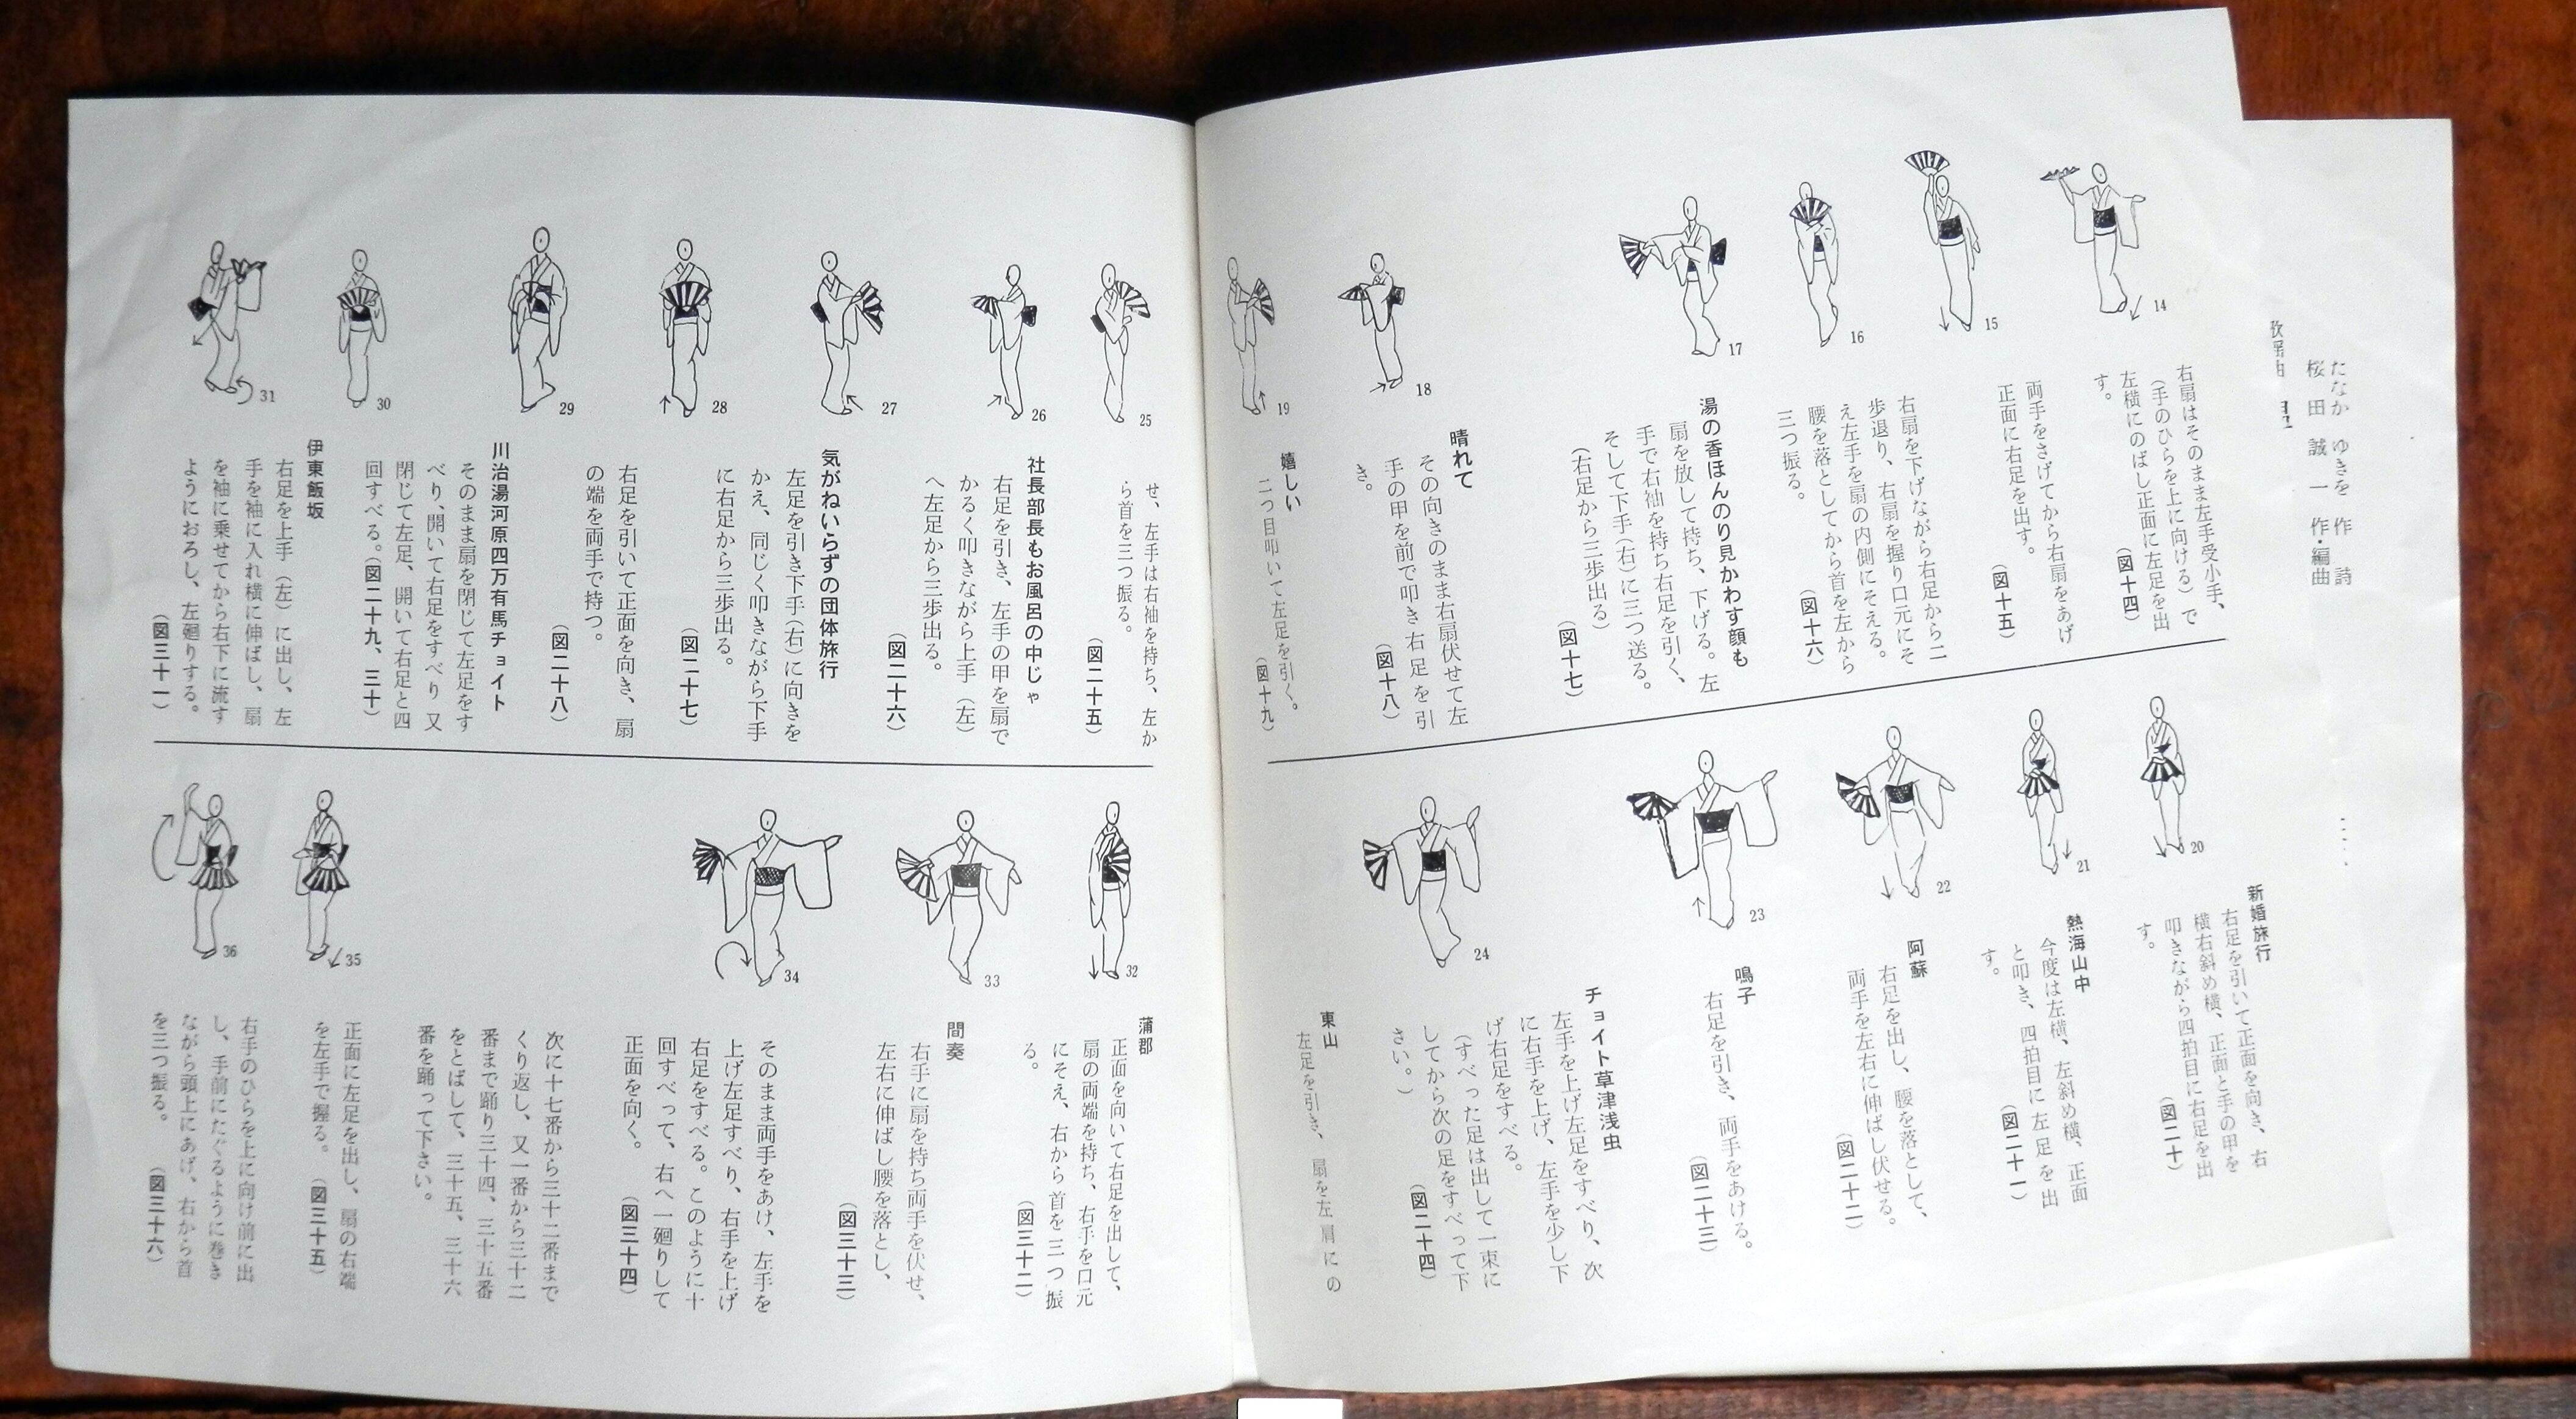 たなか ゆきを 作 詩
桜 田 誠 一 作・編曲
歌謡曲
14
右扇はそのまま左手受小手、
(手のひらを上に向ける) で
左横にのばし正面に左足を出
す。
(図十四)
15
両手をさげてから右扇をあげ
正面に右足を出す。
(図十五)
16
右扇を下げながら右足から二
歩退り、右扇を握り口元にそ
え左手を扇の内側にそえる。
腰を落としてから首を左から
三つ振る。
(図十六)
17
湯の香ほんのり見かわす顔も
扇を放して持ち、下げる。左
手で右袖を持ち右足を引く、
そして下手(右)に三つ送る。
(右足から三歩出る)
(図十七)
18
晴れて
その向きのまま右扇伏せて左
手の甲を前で叩き右足を引
き。
(図十八)
19
嬉しい
二つ目叩いて左足を引く。
(図十九)
20
新婚旅行
右足を引いて正面を向き、右
横右斜め横、正面と手の甲を
叩きながら四拍目に右足を出
す。
(図二十)
21
熱海山中
今度は左横、左斜め横、正面
と叩き、四拍目に左足を出
す。
(図二十一)
22
阿蘇
右足を出し、腰を落として、
両手を左右に伸ばし伏せる。
(図二十二)
23
鳴子
右足を引き、両手をあける。
(図二十三)
24
チョイト草津浅虫
左手を上げ左足をすべり、次
に右手を上げ、左手を少し下
げ右足をすべる。
(すべった足は出して一束に
してから次の足をすべって下
さい。)
(図二十四)
東山
左足を引き、扇を左肩にの
25
せ、左手は右袖を持ち、左か
ら首を三つ振る。
(図二十五)
26
社長部長もお風呂の中じゃ
右足を引き、左手の甲を扇で
かるく叩きながら上手(左)
へ左足から三歩出る。
(図二十六)
27
気がねいらずの団体旅行
左足を引き下手(右)に向きを
かえ、同じく叩きながら下手
に右足から三歩出る。
(図二十七)
28
右足を引いて正面を向き、扇
の端を両手で持つ。
(図二十八)
29
30
川治湯河原四万有馬チョイト
そのまま扇を閉じて左足をす
べり、開いて右足をすべり又
閉じて左足、開いて右足と四
回すべる。(図二十九、三十)
31
伊東飯坂
右足を上手(左)に出し、左
手を袖に入れ横に伸ばし、扇
を袖に乗せてから右下に流す
ようにおろし、左廻りする。
(図三十一)
32
蒲郡
正面を向いて右足を出して、
扇の両端を持ち、右手を口元
にそえ、右から首を三つ振
る。
(図三十二)
33
間奏
右手に扇を持ち両手を伏せ、
左右に伸ばし腰を落とし、
(図三十三)
34
そのまま両手をあけ、左手を
上げ左足すべり、右手を上げ
右足をすべる。このように十
回すべって、右へ一廻りして
正面を向く。
(図三十四)
次に十七番から三十二番まで
くり返し、又一番から三十二
番まで踊り三十四、三十五番
をとばして、三十五、三十六
番を踊って下さい。
35
正面に左足を出し、扇の右端
を左手で握る。
(図三十五)
36
右手のひらを上に向け前に出
し、手前にたぐるように巻き
ながら頭上にあげ、右から首
を三つ振る。
(図三十六)